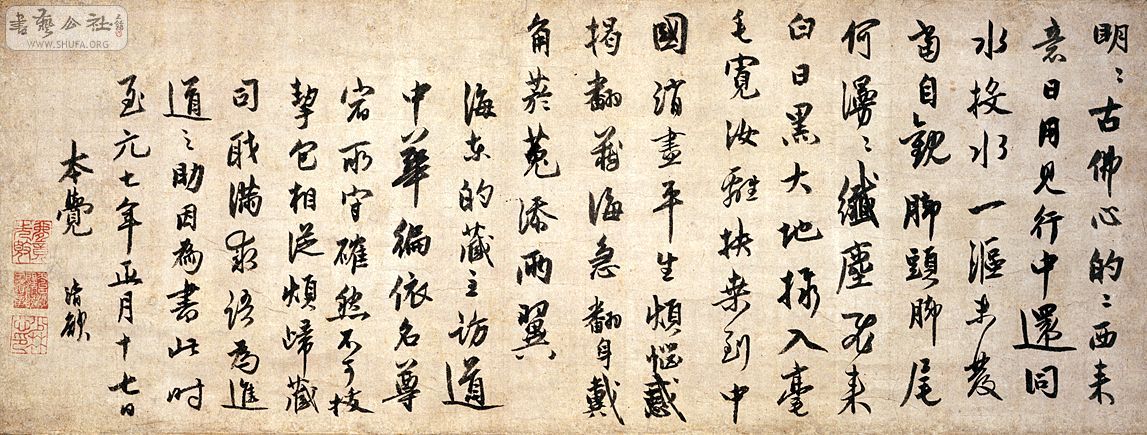 明〻古佛心的〻西来
意日用見行中還同
水投水一漚未發
當自觀脚頭脚尾
何漫〻纖塵飛来
白日黑大地採入毫
毛寬汝離扶桒到中
國消盡平生煩惱惑
揭翻藏海急翻身戴
角於菟添兩翼
海东的藏主訪道
中華徧依名尊
宿所守確然不可拔
挈包相從煩歸藏
司职滿求語為進
道之助因為書此时
至元七年正月十七日
本覺 清欲
書藝公社
WWW.SHUFA.ORG